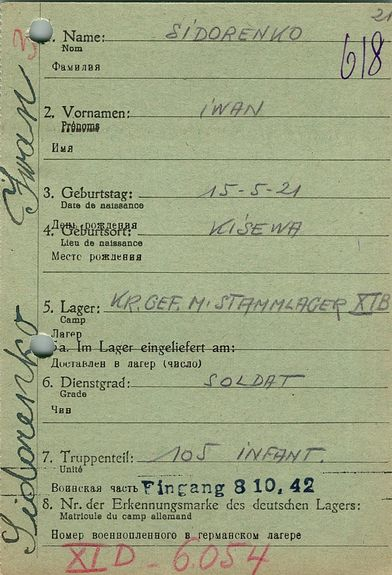 21
3
1. Name: SIDORENKO
Nom
Фамилия
618
2. Vornamen: IWAN
Prénoms
Имя
3. Geburtstag: 15-5-21
Date de naissance
День рождения
4. Geburtsort: KISEWA
Lieu de naissance
Место рождения
5. Lager: KR.GEF.M.STAMMLAGER XIB
Camp
Лагерь
5a. Im Lager eingeliefert am:
Доставлен в лагерь (число)
6. Dienstgrad: SOLDAT
Grade
Чин
7. Truppenteil: 105 INFANT.
Unité
Воинская часть Eingang 8 10. 42
8. Nr. der Erkennungsmarke des deutschen Lagers:
Matricule du camp allemand
Номер военнопленного в германском лагере
XID - 6.054
Sidorenko Iwan